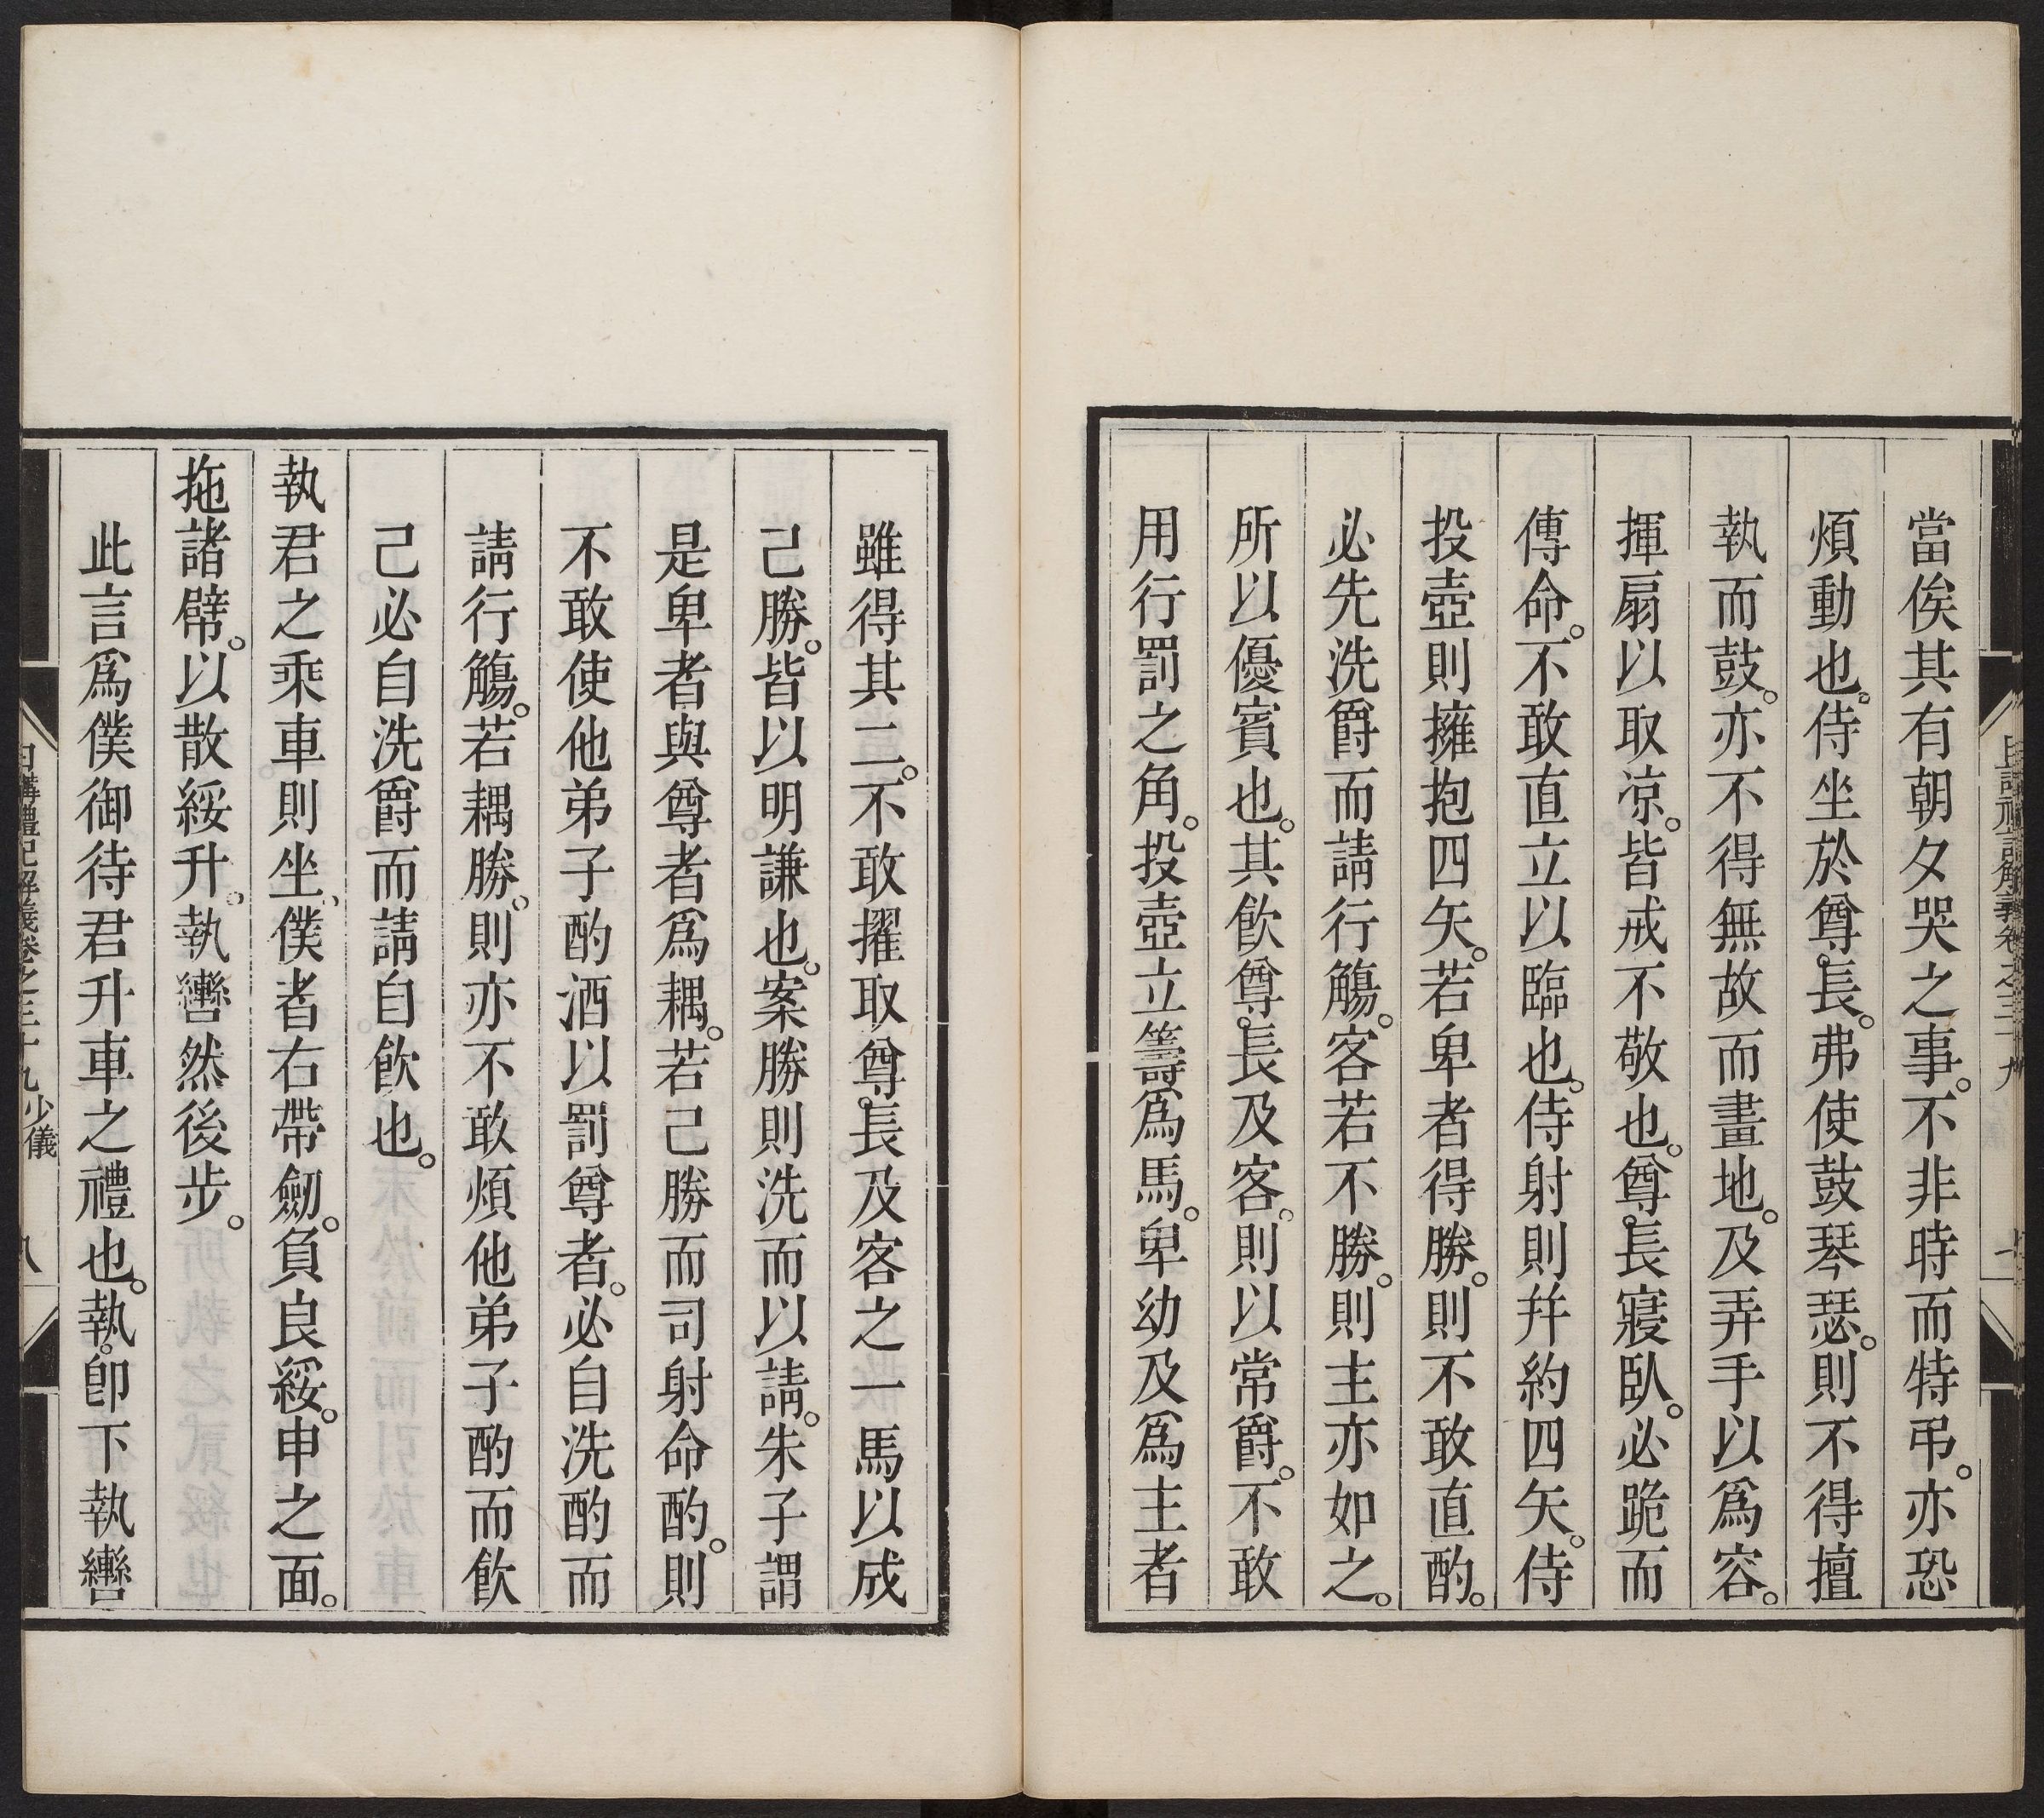 當俟其有朝夕哭之事。不非時而特弔。亦恐
煩動也。侍坐於尊長。弗使鼓琴瑟。則不得擅
執而鼓。亦不得無故而畫地。及弄手以爲容。
揮扇以取凉。皆戒不敬也。尊長寢臥。必跪而
傳命。不敢直立以臨也。侍射則幷約四矢。侍
投壺則擁抱四矢。若卑者得勝。則不敢直酌。
必先洗爵而請行觴。客若不勝。則主亦如之。
所以優賓也。其飮尊長及客。則以常爵。不敢
用行罰之角。投壺立籌爲馬。卑幼及爲主者
雖得其二。不敢擢取尊長及客之一馬以成
己勝。皆以明謙也。案勝則洗而以請。朱子謂
是卑者與尊者爲耦。若己勝而司射命酌。則
不敢使他弟子酌酒以罰尊者。必自洗酌而
請行觴。若耦勝。則亦不敢煩他弟子酌而飮
己必自洗爵而請自飮也。
執君之乘車則坐、僕者右帶劒。負良綏。申之面。
拖諸幦。以散綏升。執轡然後步。
此言爲僕御待君升車之禮也。執。卽下執轡
日講禮記解義卷之三十九 少儀 八